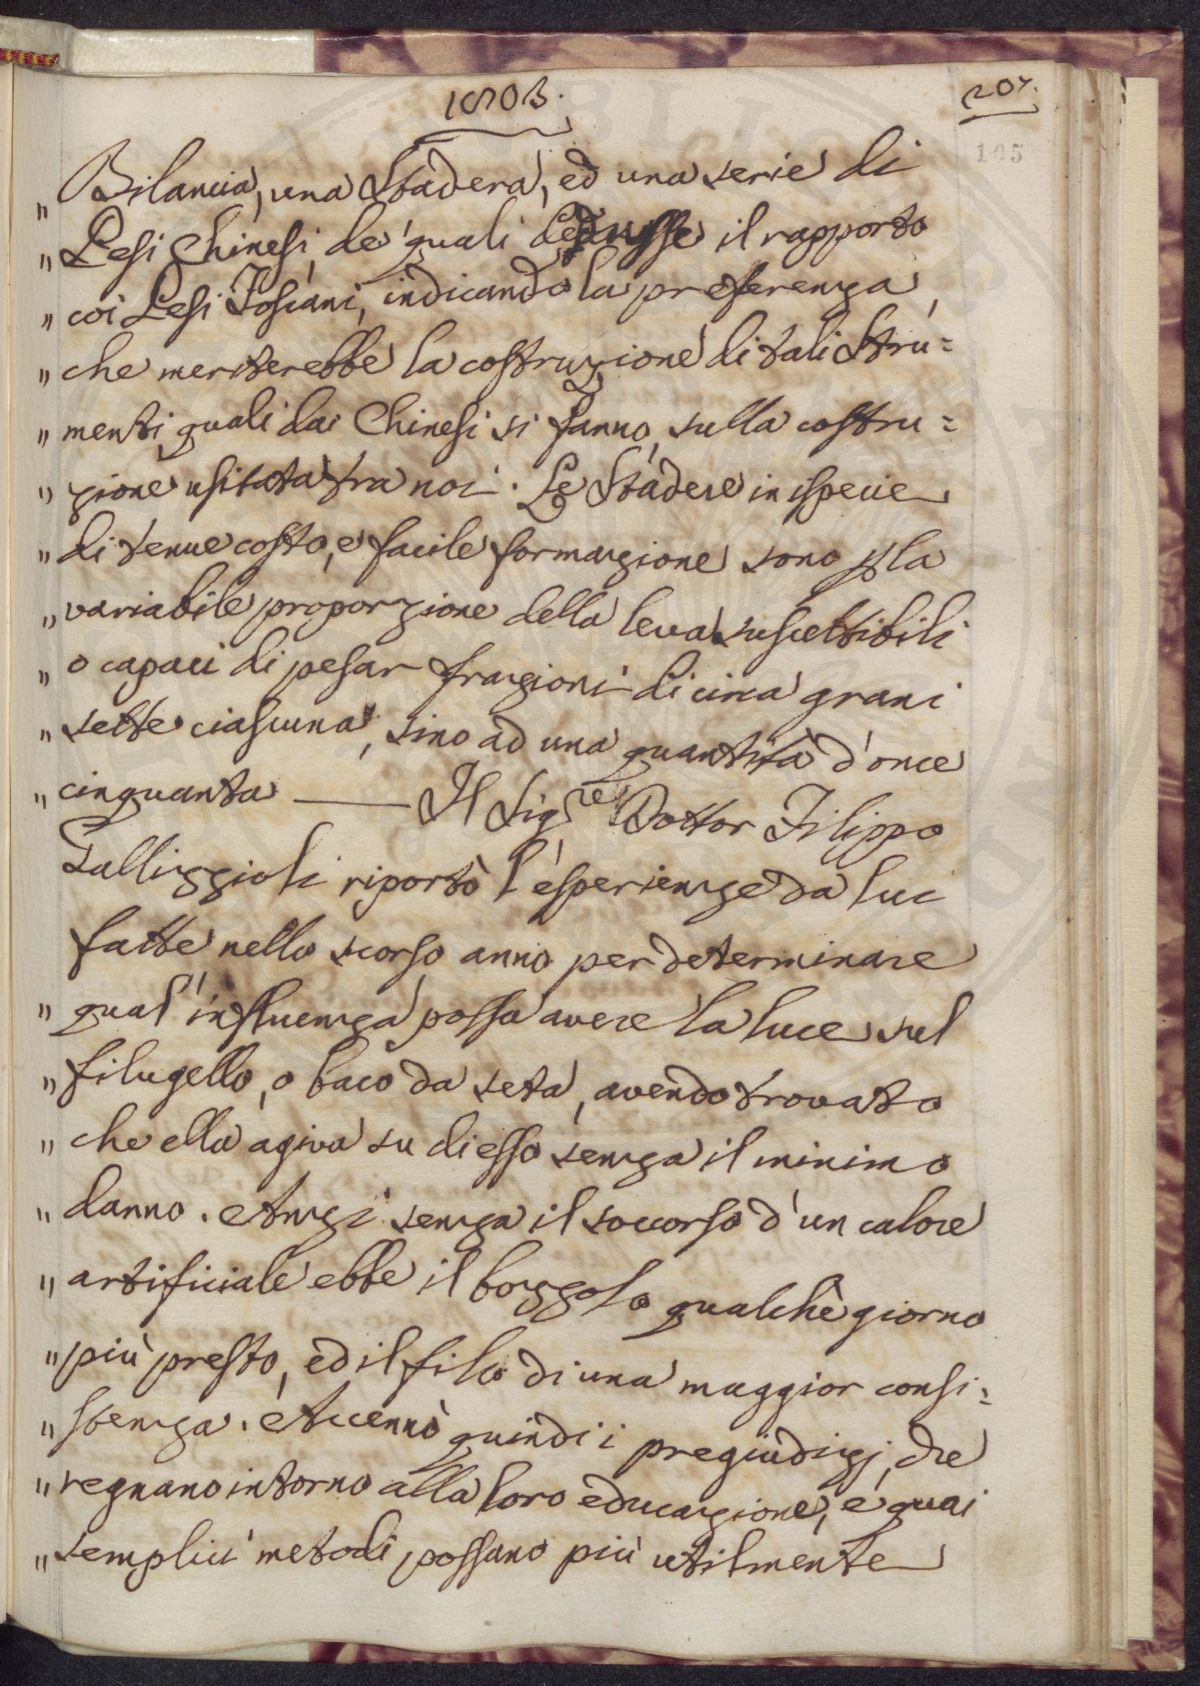 1803.
207.
105
„ Bilancia, una Stadera, ed una serie di
„ Pesi Chinesi, de' quali dedusse il rapporto
„ coi Pesi Toscani, indicando la preferenza,
„ che meriterebbe la costruzione di tali Stru=
„ menti, quali dai Chinesi si fanno, sulla costru=
„ zione usitata tra noi. Le Stadere in ispecie
„ di tenue costo, e facile formazione sono p la
„ variabile proporzione della leva suscettibili
„ o capaci di pesar frazioni di circa grani
„ sette ciascuna, sino ad una quantità d'once
„ cinquanta —— Il Sigre Dottor Filippo
Gallizzioli riportò l'esperienze da lui
fatte nello scorso anno per determinare
„ qual' influenza possa avere la luce sul
„ filugello, o baco da seta, avendo trovato
„ che ella agiva su di esso senza il minimo
„ danno. Anzi senza il soccorso d'un calore
„ artificiale ebbe il bozzolo qualche giorno
„ più presto, ed il filo di una maggior consi=
„ stenza. Accennò quindi i pregiudizj, che
„ regnano intorno alla loro educazione, e quai
„ semplici metodi possano più utilmente